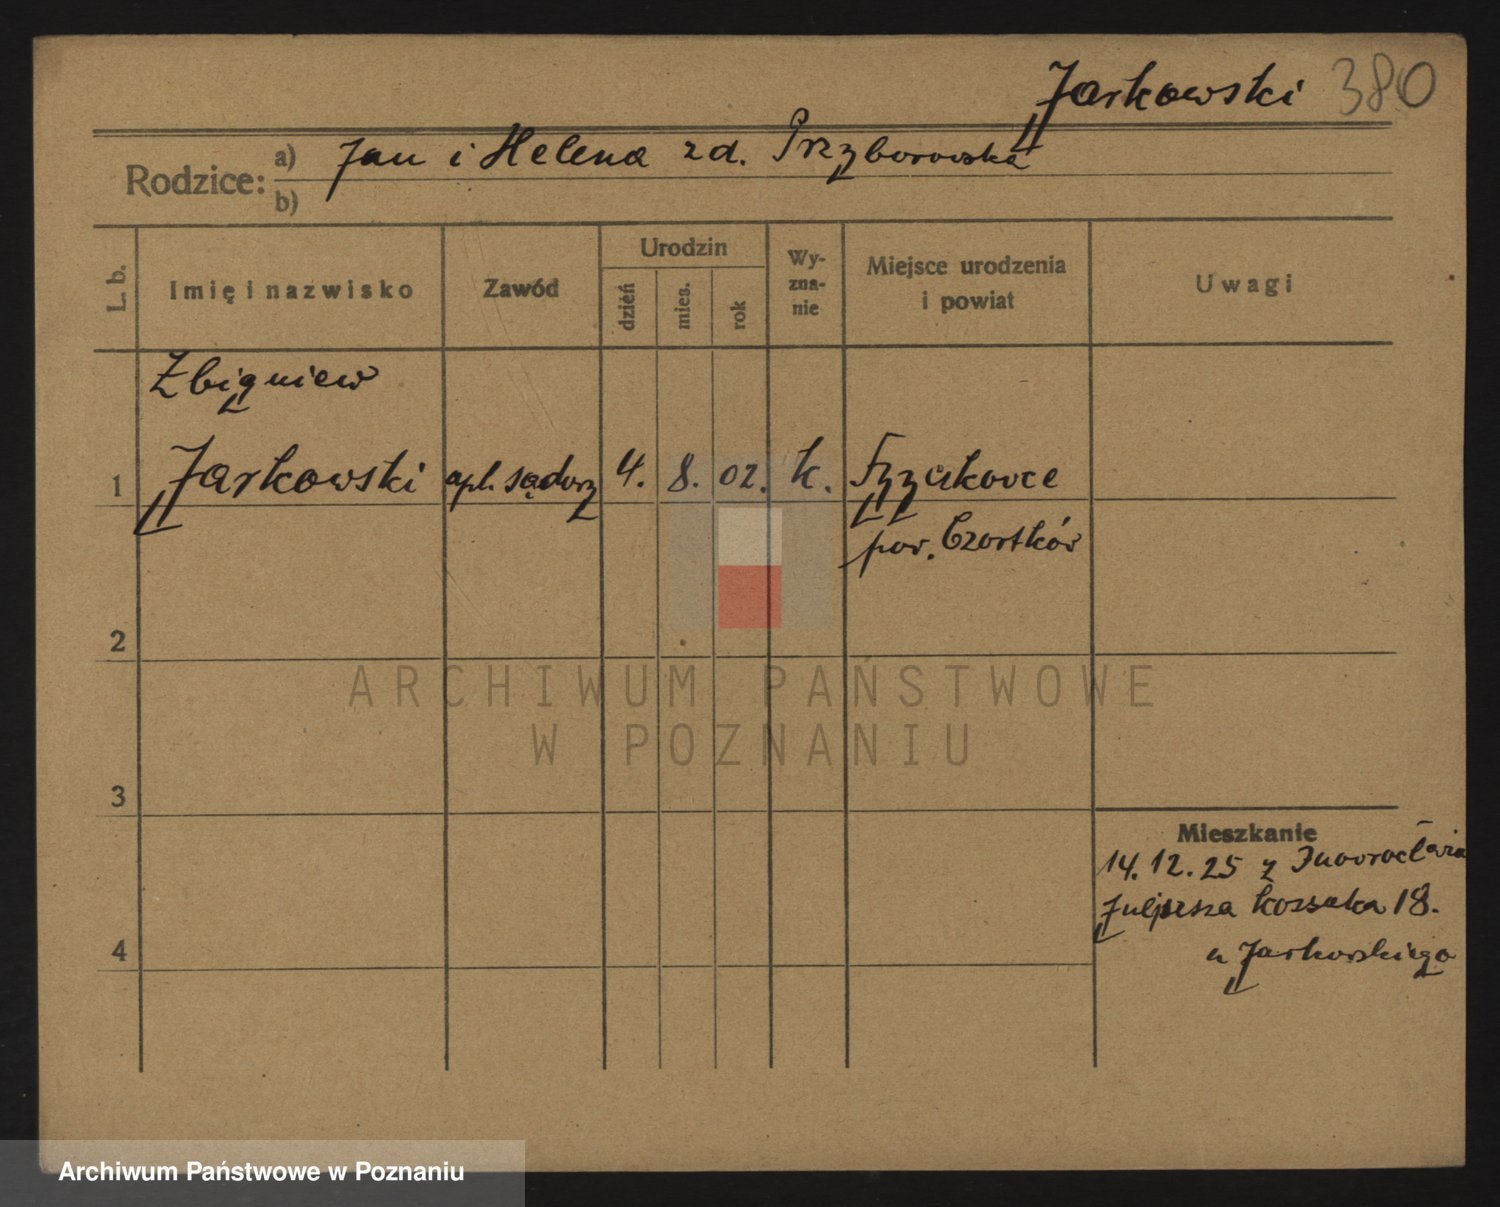 Jarkowski 380
Rodzice: a) Jan i Helena zd. Przyborowska
b)
L. b. Imię i nazwisko Zawód Urodzin dzień mies. rok Wy-zna-nie Miejsce urodzenia i powiat Uwagi
Zbigniew
1 Jarkowski apl. sądowy 4. 8. 02. k.
pow. Czortków
2
ARCHIWUM PAŃSTWOWE
W POZNANIU
3
Mieszkanie
14.12.25 z Inowrocławia
Juljusza Kossaka 18.
4
u Jarkowskiego
Archiwum Państwowe w Poznaniu